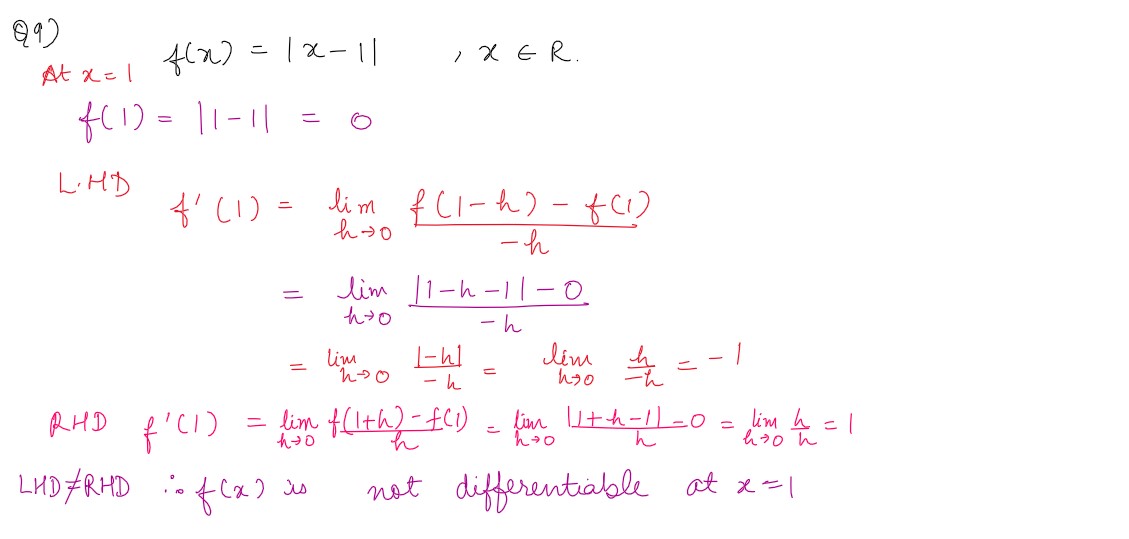 Q9)
f(x) = |x-1| , x ∈ R.
At x=1
f(1) = |1-1| = 0
L.HD
f'(1) = lim h→0 f(1-h) - f(1) / -h
= lim h→0 |1-h-1| - 0 / -h
= lim h→0 |-h| / -h = lim h→0 h / -h = -1
RHD f'(1) = lim h→0 f(1+h) - f(1) / h = lim h→0 |1+h-1| - 0 / h = lim h→0 h / h = 1
LHD≠RHD ∴ f(x) is not differentiable at x=1